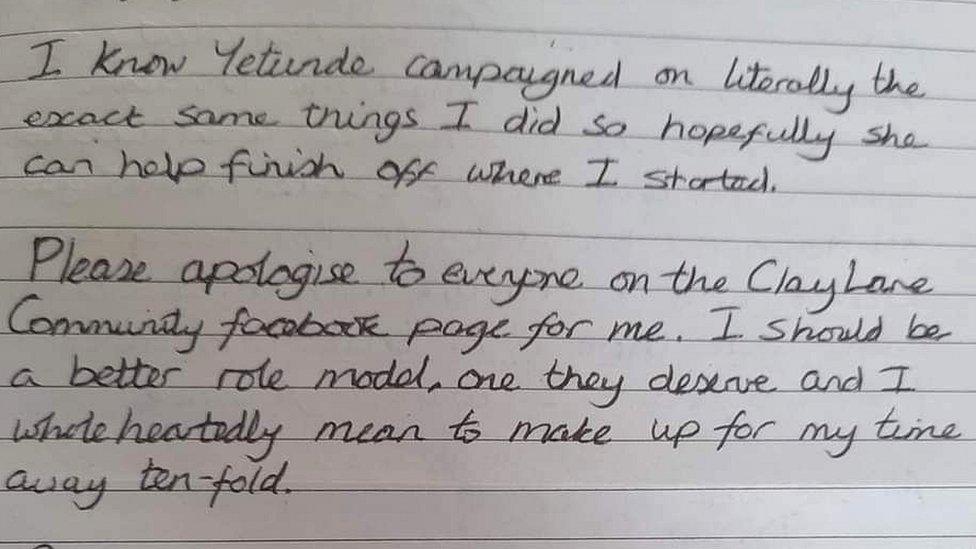 I know Yetunde campaigned on literally the
exact same things I did so hopefully she
can help finish off where I started.
Please apologise to everyone on the Clay Lane
Community facebook page for me. I should be
a better role model, one they deserve and I
whole heartedly mean to make up for my time
away ten-fold.